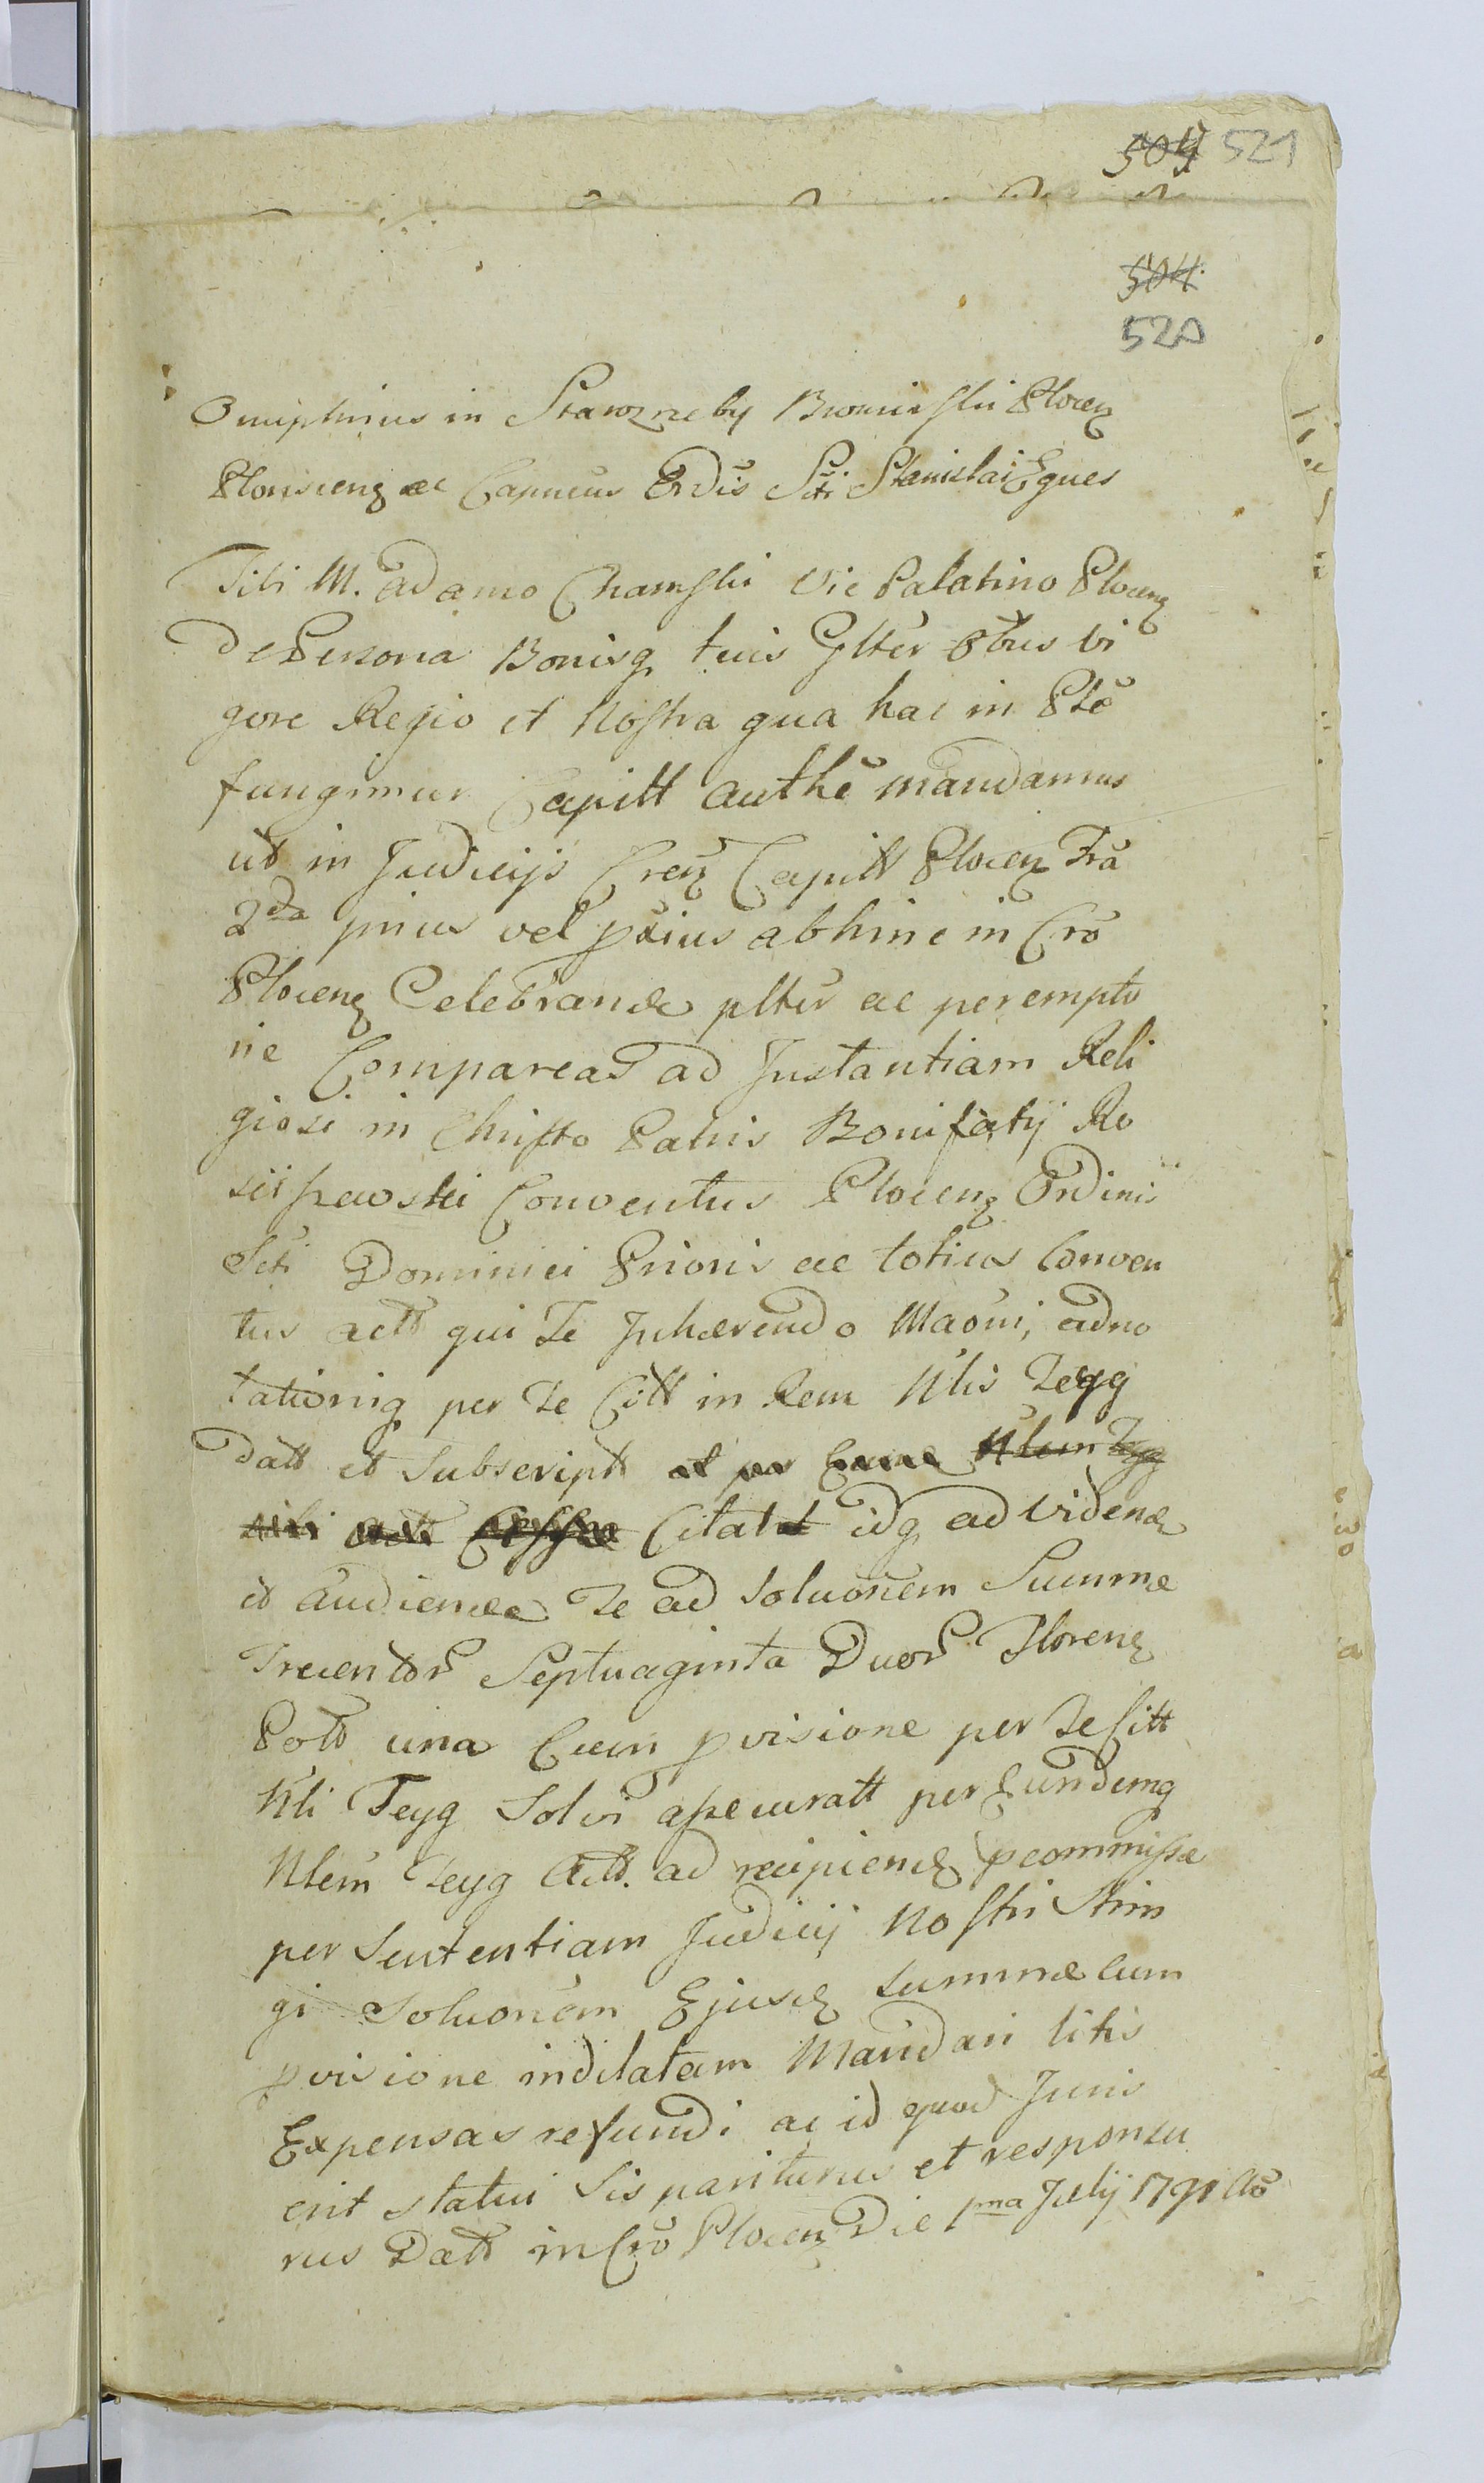 504 521
504
520
Onuphrius in Starozreby Bromirski Plocen
Plonscens ac Capneus Ordis Scti Stanislai Eques
Tibi M. Adamo Chamski Vic Palatino Plocen
De Persona Bonisq tuis Glter Obus vi
gore Regio et Nostra qua hac in Pte
fungimur Capitt authe mandamus
ut in Judicijs Cren Capitt Plocen Fra
2da prius vel pxius abhinc in Cro
Plocens Celebrande pltir ac perempto
rie Compareas ad Instantiam Reli
giosi in Christo Patris Bonifatij Ro
Conventus Plocens Ordinis
Scti Dominici Prioris ac totius Conven
tus actt qui Te Inhærendo Maoni, adno
tationiq per Te Citt in Rem Nlis Teyg
Datt et Subscriptt et per Nlem Teyg
sibi Cessæ Citatt idq ad Videndæ
et audiendæ Te ad Soluonem Summæ
Trecentor Septuaginta Duor Florens
Poltt una Cum pvisione per Te Citt
Nli Teyg Solvi assecuratt per Eundemq
Nlem Teyg Actt. ad recipiend pcommissæ
per Sententiam Judicij Nostri Strin
gi Soluonem Ejusd summæ cum
pvisione indilatam Mandari litis
Expensas refundi ac id quod Juris
erit statui Sis pariturus et responsu
rus Datt in Cro Plocen Die 1ma Julij 1791 Ao